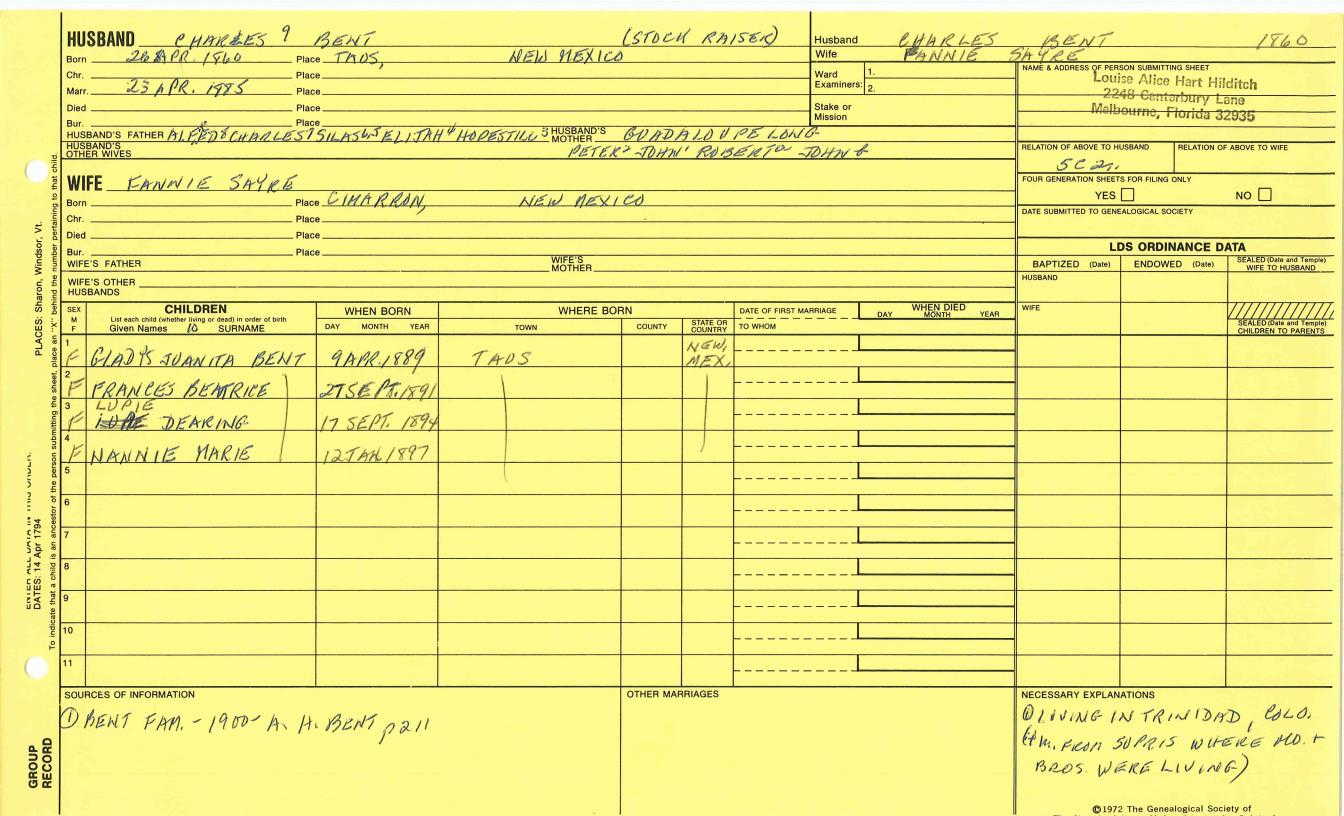 HUSBAND CHARLES 9 BENT (STOCK RAISER)
Born 26 APR. 1860 Place TAOS, NEW MEXICO
Chr. Place
Marr. 23 APR. 1985 Place
Died Place
Bur. Place
HUSBAND'S FATHER ALFRED8 CHARLES7 SILAS6,5 ELIJAH4 HOPESTILL3 HUSBAND'S MOTHER GUADALOUPE LONG
HUSBAND'S OTHER WIVES PETER2 JOHN1 ROBERT JOHN
Husband CHARLES BENT 1860
Wife FANNIE SAYRE
Ward Examiners: 1.
2.
Stake or Mission
NAME & ADDRESS OF PERSON SUBMITTING SHEET
Louise Alice Hart Hilditch
2248 Canterbury Lane
Melbourne, Florida 32935
RELATION OF ABOVE TO HUSBAND RELATION OF ABOVE TO WIFE
5C 2r.
FOUR GENERATION SHEETS FOR FILING ONLY
YES NO
DATE SUBMITTED TO GENEALOGICAL SOCIETY
WIFE FANNIE SAYRE
Born Place CIMARRON, NEW MEXICO
Chr. Place
Died Place
Bur. Place
WIFE'S FATHER WIFE'S MOTHER
WIFE'S OTHER HUSBANDS
LDS ORDINANCE DATA
BAPTIZED (Date) ENDOWED (Date) SEALED (Date and Temple) WIFE TO HUSBAND
HUSBAND
WIFE
SEALED (Date and Temple) CHILDREN TO PARENTS
SEX M F
CHILDREN
List each child (whether living or dead) in order of birth
Given Names 10 SURNAME
WHEN BORN
DAY MONTH YEAR
WHERE BORN
TOWN COUNTY STATE OR COUNTRY
DATE OF FIRST MARRIAGE
TO WHOM
WHEN DIED
DAY MONTH YEAR
1 F GLADYS JUANITA BENT 9 APR. 1889 TAOS NEW. MEX.
2 F FRANCES BEATRICE 27 SEPT. 1891
3 F LUPIE DEARING 17 SEPT. 1894
4 F NANNIE MARIE 12 JAN. 1897
5
6
7
8
9
10
11
SOURCES OF INFORMATION
① BENT FAM. - 1900 - A. H. BENT p 211
OTHER MARRIAGES
NECESSARY EXPLANATIONS
① LIVING IN TRINIDAD, COLO.
(4 m. FROM SOPRIS WHERE MO. +
BROS. WERE LIVING)
©1972 The Genealogical Society of
ENTER ALL DATA IN THIS ORDER:
DATES: 14 Apr 1794
PLACES: Sharon, Windsor, Vt.
To indicate that a child is an ancestor of the person submitting the sheet, place an "X" behind the number pertaining to that child.
GROUP RECORD